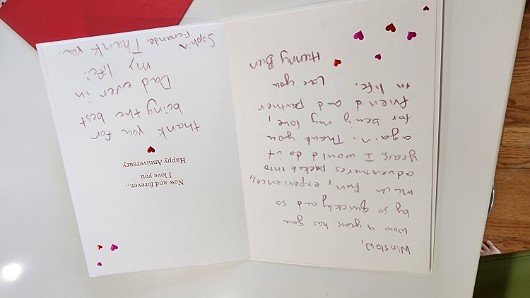 Winslow,
Wow a year has gone
by so quickly and so
much fun, experiences,
adventures packed into
years. I would do it
again. Thank you
for being my love,
friend and partner
in life.
Luv you
Hunny Bun
Now and forever...
I love you
Happy Anniversary
thank you for
being the best
Dad ever in
my life!
Sophia
Fernanda Thank you.